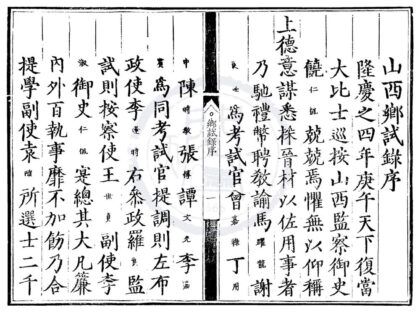 山西鄉試錄序
隆慶之四年庚午天下復當
大比士巡按山西監察御史
饒仁侃兢兢焉懼無以仰稱
上德意謀悉採晉材以佐用事者
乃馳禮幣聘教諭馬躍龍謝
良士爲考試官曾丁
鄉試錄序
一
陳張譚文光李
爲同考試官提調則左布
政使李右參政羅監
試則按察使王副使李
淑御史仁侃寔總其大凡簾
內外百執事靡不加飭乃合
提學副使袁隨所選士二千